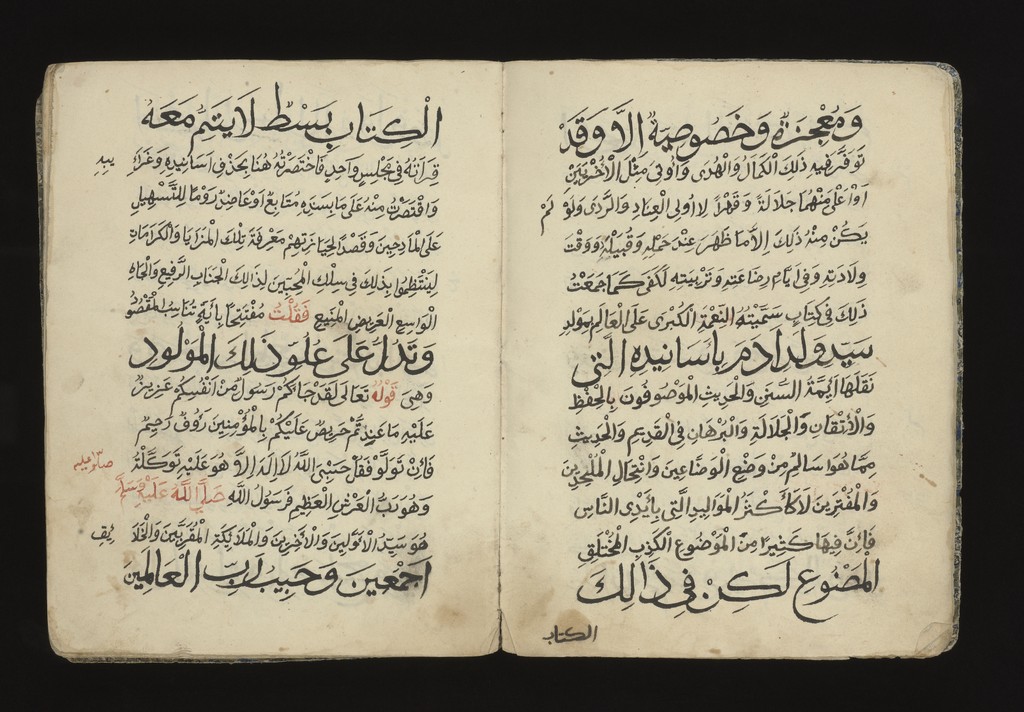 وَمُعْجِزَةٍ وَخُصُوصِيةٍ الاَّ وَقَدْ
تَوَفَّرَ فِيهِ ذَلِكَ الْكَمَالَ وَالْهُدَى وَأُوتِىَ مِثْلَ الْأُخْرَيَيْنِ
اَوْ اَعْلَى مِنْهُمَا جَلاَلَةً وَقَهْرًا لِاُولِى الْعِنَادِ وَالرَّدَى وَلَوْ لَمْ
يَكُنْ مِنْهُ ذَلِكَ اِلاَّ مَا ظَهَرَ عِنْدَ حَمْلِهِ وَقُبَيْلِهِ وَوَقْتَ
وِلَادَتِهِ وَفِى اَيَّامِ رِضَاعَتِهِ وَتَرْبِيَتِهِ لَكَفَى كَمَا جَمَعْتُ
ذَلِكَ فِى كِتَابٍ سَمَّيْتُهُ النِّعْمَةَ الْكُبْرَى عَلَى الْعَالَمِ بِمَوْلِدِ
سَيِّدِ وَلَدِ اٰدَمَ بِأَسَانِيدِهِ الَّتِى
نَقَلَهَا اَئِمَّةُ السُّنَنِ وَالْحَدِيثِ الْمَوْصُوفُونَ بِالْحِفْظِ
وَالْأَتْقَانِ وَالْجَلاَلَةِ وَالْبُرْهَانِ فِى الْقَدِيمِ وَالْحَدِيثِ
مِمَّا هُوَ اسَالِمٌ مِنْ وَضْعِ الْوَضَّاعِينَ وَانْتِحَالِ الْمُلْحِدِينَ
وَالْمُفْتَرِينَ لاَ كَأَكْثَرِ الْمَوَالِيدِ الَّتِى بِأَيْدِى النَّاسِ
فَإِنَّ فِيهَا كَثِيرًا مِنَ الْمَوْضُوعِ الْكَذِبِ الْمُخْتَلَقِ
الْمَصْنُوعِ لَكِنْ فِى ذَالِكَ
الكتاب
الْكِتَابِ بَسْطٌ لاَ يَتِمُّ مَعَهُ
قِرَاَتُهُ فِى مَجْلِسٍ وَاحِدٍ فَاخْتَصَرْتُهُ هُنَا بِحَذْفِ اَسَانِيدِهِ وَغَرَائِبِهِ
وَاقْتَصَرْتُ مِنْهُ عَلَى مَا بِسَنَدِهِ مُتَابِعٌ اَوْ عَاضِدٌ رَوْمًا لِلتَّسْهِيلِ
عَلَى الْمَادِحِينَ وَقَصْدًا لِحِيَازَتِهِمْ مَعْرِفَةَ تِلْكَ الْمَزَايَا وَالْكَرَامَاتِ
لِيَنْتَظِمُوا بِذَلِكَ فِى سِلْكِ الْمُحِبِّينَ لِذَالِكَ الْجَنَابِ الرَّفِيعِ وَالْجَاهِ
الْوَاسِعِ الْعَرِيضِ الْمَنِيعِ فَقُلْتُ مُفْتَتِحًا بِأَيَةٍ تُنَاسِبُ الْمَقْصُودَ
وَتَدُلُّ عَلَى عُلُوِّ ذَلِكَ الْمَوْلُودِ
وَهِىَ قَوْلُهُ تَعَالَى لَقَدْ جَاءَكُمْ رَسُولٌ مِنْ اَنْفُسِكُمْ عَزِيزٌ
عَلَيْهِ مَا عَنِتُّمْ حَرِيصٌ عَلَيْكُمْ بِالْمُؤْمِنِينَ رَؤُوفٌ رَحِيمٌ
فَاِنْ تَوَلَّوْ فَقُلْ حَسْبِىَ اللَّهُ لاَ اِلَهَ اِلاَّ هُوَ عَلَيْهِ تَوَكَّلْتُ
وَهُوَ رَبُّ الْعَرْشِ الْعَظِيمِ فَرَسُولُ اللَّهِ صَلَّى اللَّهُ عَلَيْهِ وَسَلَّمَ
هُوَ سَيِّدُ الْأَوَّلِينَ وَالْأَخِرِينَ وَالْمَلَائِكَةِ الْمُقَرَّبِينَ وَالْخَلاَئِقِ
اَجْمَعِينَ وَحَبِيبُ رَبِّ الْعَالَمِينَ